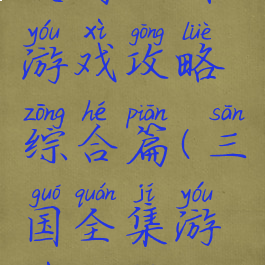 yóu xì gōng lüè
游戏攻略
zōng hé piān sān
综合篇(三
guó quán jí yóu
国全集游